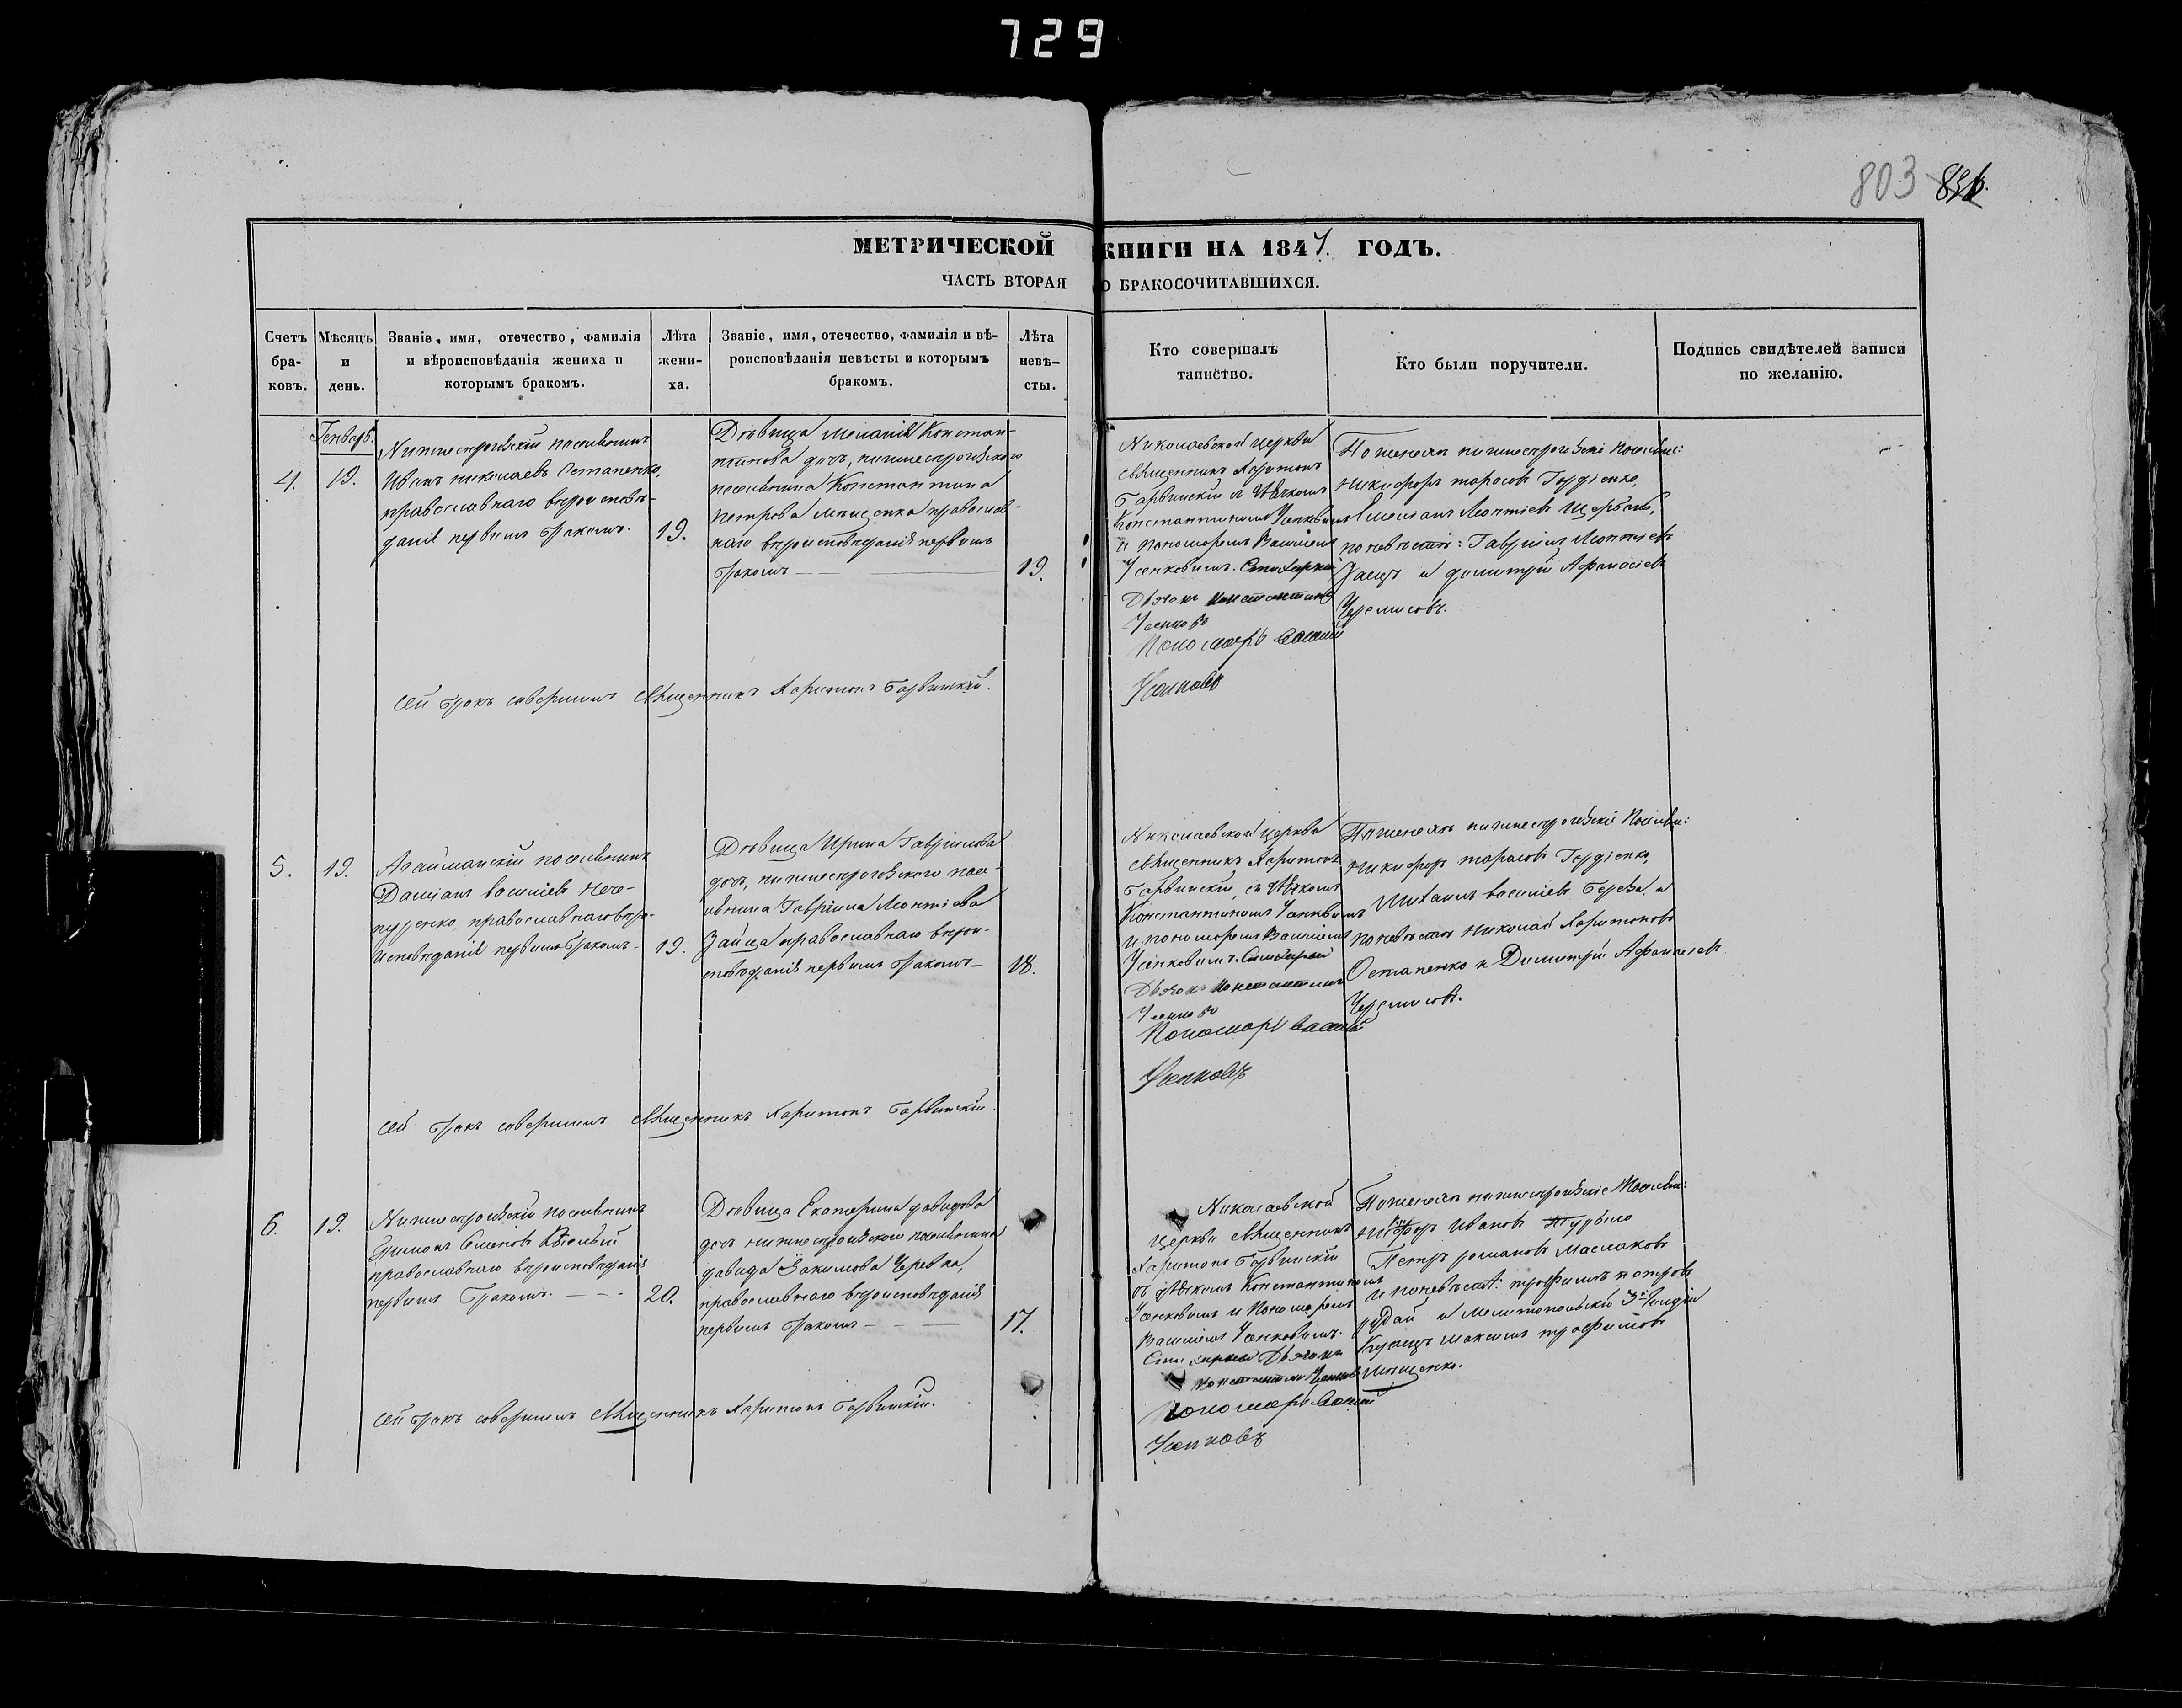 729
803 896.
МЕТРИЧЕСКОЙ КНИГИ НА 1847. ГОДЪ.
ЧАСТЬ ВТОРАЯ О БРАКОСОЧИТАВШИХСЯ.
Счетъ бра-ковъ.
Мѣсяцъ и день.
Званіе, имя, отечество, фамилія
и вѣроисповѣданія жениха и
которымъ бракомъ.
Лѣта жени-ха.
Званіе, имя, отечество, фамилія и вѣ-
роисповѣданія невѣсты и которымъ
бракомъ.
Лѣта невѣ-сты.
Кто совершалъ
таинство.
Кто были поручители.
Подпись свидѣтелей записи
по желанію.
Генварь.
4.
19.
Нижнесѣрогозскій поселянинъ
Иванъ Николаевъ Остапенко,
православнаго вѣроисповѣ-
данія первымъ бракомъ.
19.
Дѣвица Меланія Констан-
тинова дочь, нижнесѣрогозскаго
поселянина Константина
Петрова Мищенка православ-
наго вѣроисповѣданія первымъ
бракомъ
19.
Николаевской церкви
священникъ Харитонъ
Барвинскій съ дьячкомъ
Константиномъ
и пономаремъ Василіемъ
Дьячокъ Константинъ
Пономарь Василій
По женихѣ нижнесѣрогозскіе поселяне:
Никифоръ Тарасовъ Гордіенко,
Емеліанъ Леонтіевъ Щербакъ,
по невѣстѣ: Гавріилъ Леонтіевъ
Заецъ и Димитрій Афанасіевъ
Черемисовъ.
Сей бракъ совершилъ священникъ Харитонъ Барвинскій.
5.
19.
Агайманскій поселянинъ
Даміанъ Василіевъ Нече-
пуренко, православнаго вѣро-
исповѣданія первымъ бракомъ
19.
Дѣвица Ирина Гавріилова
дочь, нижнесѣрогозскаго посе-
лянина Гавріила Леонтіева
Зайца православнаго вѣрои-
сповѣданія первымъ бракомъ
18.
Николаевской церкви
священникъ Харитонъ
Барвинскій, съ дьячкомъ
Константиномъ
и пономаремъ Василіемъ
Дьячокъ Константинъ
Пономарь Василій
По женихѣ нижнесѣрогозскіе поселяне:
Никифоръ Тарасовъ Гордіенко,
Михаилъ Василіевъ и
по невѣстѣ Николай Харитоновъ
Остапенко и Димитрій Афанасіевъ
Черемисовъ.
Сей бракъ совершилъ священникъ Харитонъ Барвинскій.
6.
19.
Нижнесѣрогозскій поселянинъ
Семеновъ
православнаго вѣроисповѣданія
первымъ бракомъ.
20.
Дѣвица Екатерина Давидова
дочь нижнесѣрогозскаго поселянина
Давида Якимова Черевка,
православнаго вѣроисповѣданія
первымъ бракомъ
17.
Николаевской
церкви священникъ
Харитонъ Барвинскій
съ дьячкомъ Константиномъ
и пономаремъ
Василіемъ
Дьячокъ
Константинъ
Пономарь Василій
По женихѣ нижнесѣрогозскіе поселяне:
Никифоръ Ивановъ
Петръ Романовъ Маслаковъ
и по невѣстѣ: Трофимъ Петровъ
Рудай и Мелитопольскій 3й гильдіи
купецъ Максимъ Трофимовъ
Мищенко.
Сей бракъ совершилъ священникъ Харитонъ Барвинскій.